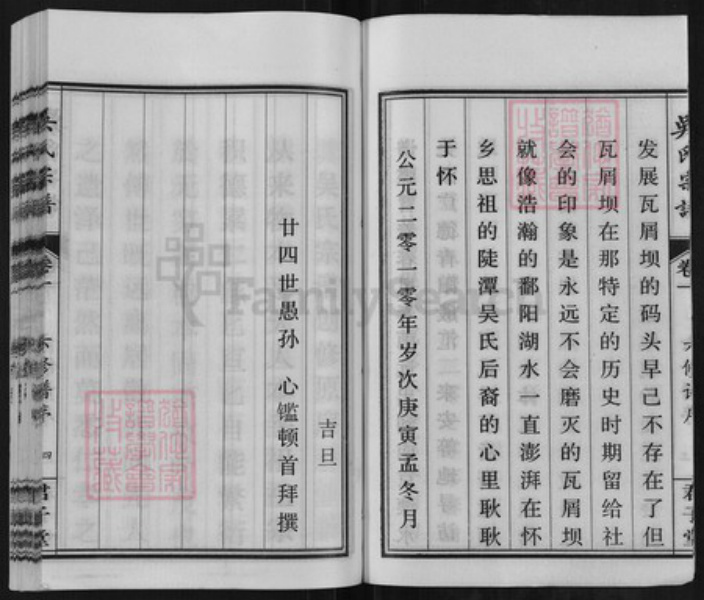 发展瓦屑坝的码头早已不存在了但
瓦屑坝在那特定的历史时期留给社
会的印象是永远不会磨灭的瓦屑坝
就像浩瀚的鄱阳湖水一直澎湃在怀
乡思祖的陡潭吴氏后裔的心里耿耿
于怀
公元二零一零年岁次庚寅孟冬月
吉旦
廿四世愚孙 心鑑顿首拜撰
吴氏宗譜
卷一
君子堂
FamilySearch